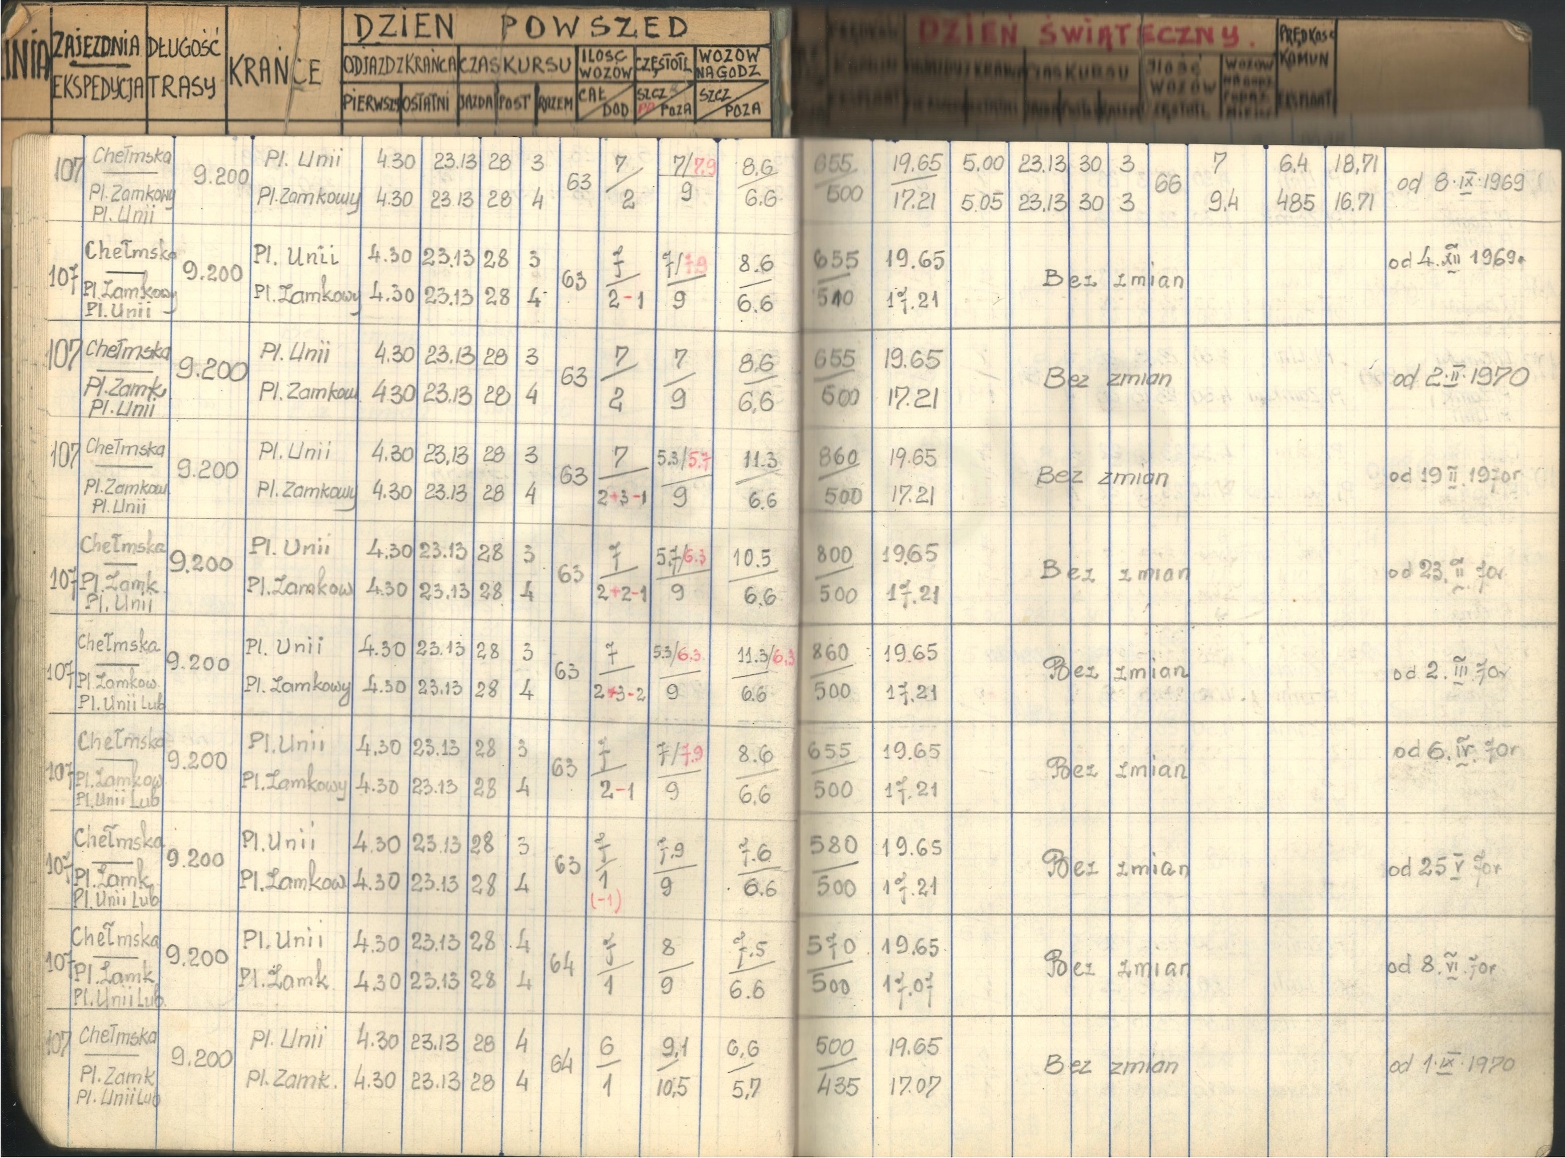 LINIA ZAJEZDNIA DŁUGOŚĆ KRAŃCE DZIEŃ POWSZED DZIEŃ ŚWIĄTECZNY.
EKSPEDYCJA TRASY ODJAZD Z KRAŃCA CZAS KURSU ILOŚĆ WOZÓW CZĘSTOTL WOZÓW NA GODZ
PIERWSZY OSTATNI JAZDA POST RAZEM CAŁ DOD SZCZ POZA SZCZ POZA
107 Chełmska 9.200 Pl. Unii 4.30 23.13 28 3 63 7 7/7.9 8.6 655 19.65 5.00 23.13 30 3 66 7 6.4 18,71 od 8.IX.1969
Pl. Zamkowy Pl. Zamkowy 4.30 23.13 28 4 2 9 6.6 500 17.21 5.05 23.13 30 3 9.4 485 16.71
Pl. Unii
107 Chełmska 9.200 Pl. Unii 4.30 23.13 28 3 63 7 7/7.9 8.6 655 19.65 Bez zmian od 4.XII 1969.
Pl. Zamkowy Pl. Zamkowy 4.30 23.13 28 4 2-1 9 6.6 510 17.21
Pl. Unii
107 Chełmska 9.200 Pl. Unii 4.30 23.13 28 3 63 7 7 8.6 655 19.65 Bez zmian od 2.II.1970
Pl. Zamk. Pl. Zamkow 4 30 23.13 28 4 2 9 6,6 500 17.21
Pl. Unii
107 Chełmska 9.200 Pl. Unii 4.30 23,13 28 3 63 7 5.3/5.7 11.3 860 19.65 Bez zmian od 19 II 1970r
Pl. Zamkow Pl. Zamkowy 4.30 23.13 28 4 2+3-1 9 6.6 500 17.21
Pl. Unii
107 Chełmska 9.200 Pl. Unii 4.30 23.13 28 3 63 7 5.7/6.3 10.5 800 19.65 Bez zmian od 23.II 70r
Pl. Zamk Pl. Zamkow 4.30 23.13 28 4 2+2-1 9 6.6 500 17.21
Pl. Unii
107 Chełmska 9.200 Pl. Unii 4.30 23.13 28 3 63 7 5.3/6.3 11.3/6.3 860 19.65 Bez zmian od 2.III.70r
Pl Zamkow Pl. Zamkowy 4.30 23.13 28 4 2+3-2 9 6.6 500 17.21
Pl. Unii Lub
107 Chełmska 9.200 Pl. Unii 4.30 23.13 28 3 63 7 7/7.9 8.6 655 19.65 Bez zmian od 6.IV.70r
Pl. Zamkow Pl. Zamkowy 4.30 23.13 28 4 2-1 9 6.6 500 17.21
Pl. Unii Lub
107 Chełmska 9.200 Pl. Unii 4.30 23.13 28 3 63 7 7.9 7.6 580 19.65 Bez zmian od 25 V 70r
Pl. Zamk Pl. Zamkow 4.30 23.13 28 4 1 9 6.6 500 17.21
Pl. Unii Lub (-1)
107 Chełmska 9.200 Pl. Unii 4.30 23.13 28 4 64 7 8 7.5 570 19.65 Bez zmian od 8.VI.70r
Pl. Zamk Pl. Zamk. 4.30 23.13 28 4 1 9 6.6 500 17.07
Pl. Unii Lub.
107 Chełmska 9.200 Pl. Unii 4.30 23.13 28 4 64 6 9,1 6,6 500 19.65 Bez zmian od 1.IX.1970
Pl. Zamk Pl. Zamk. 4.30 23.13 28 4 1 10,5 5,7 435 17.07
Pl. Unii Lub